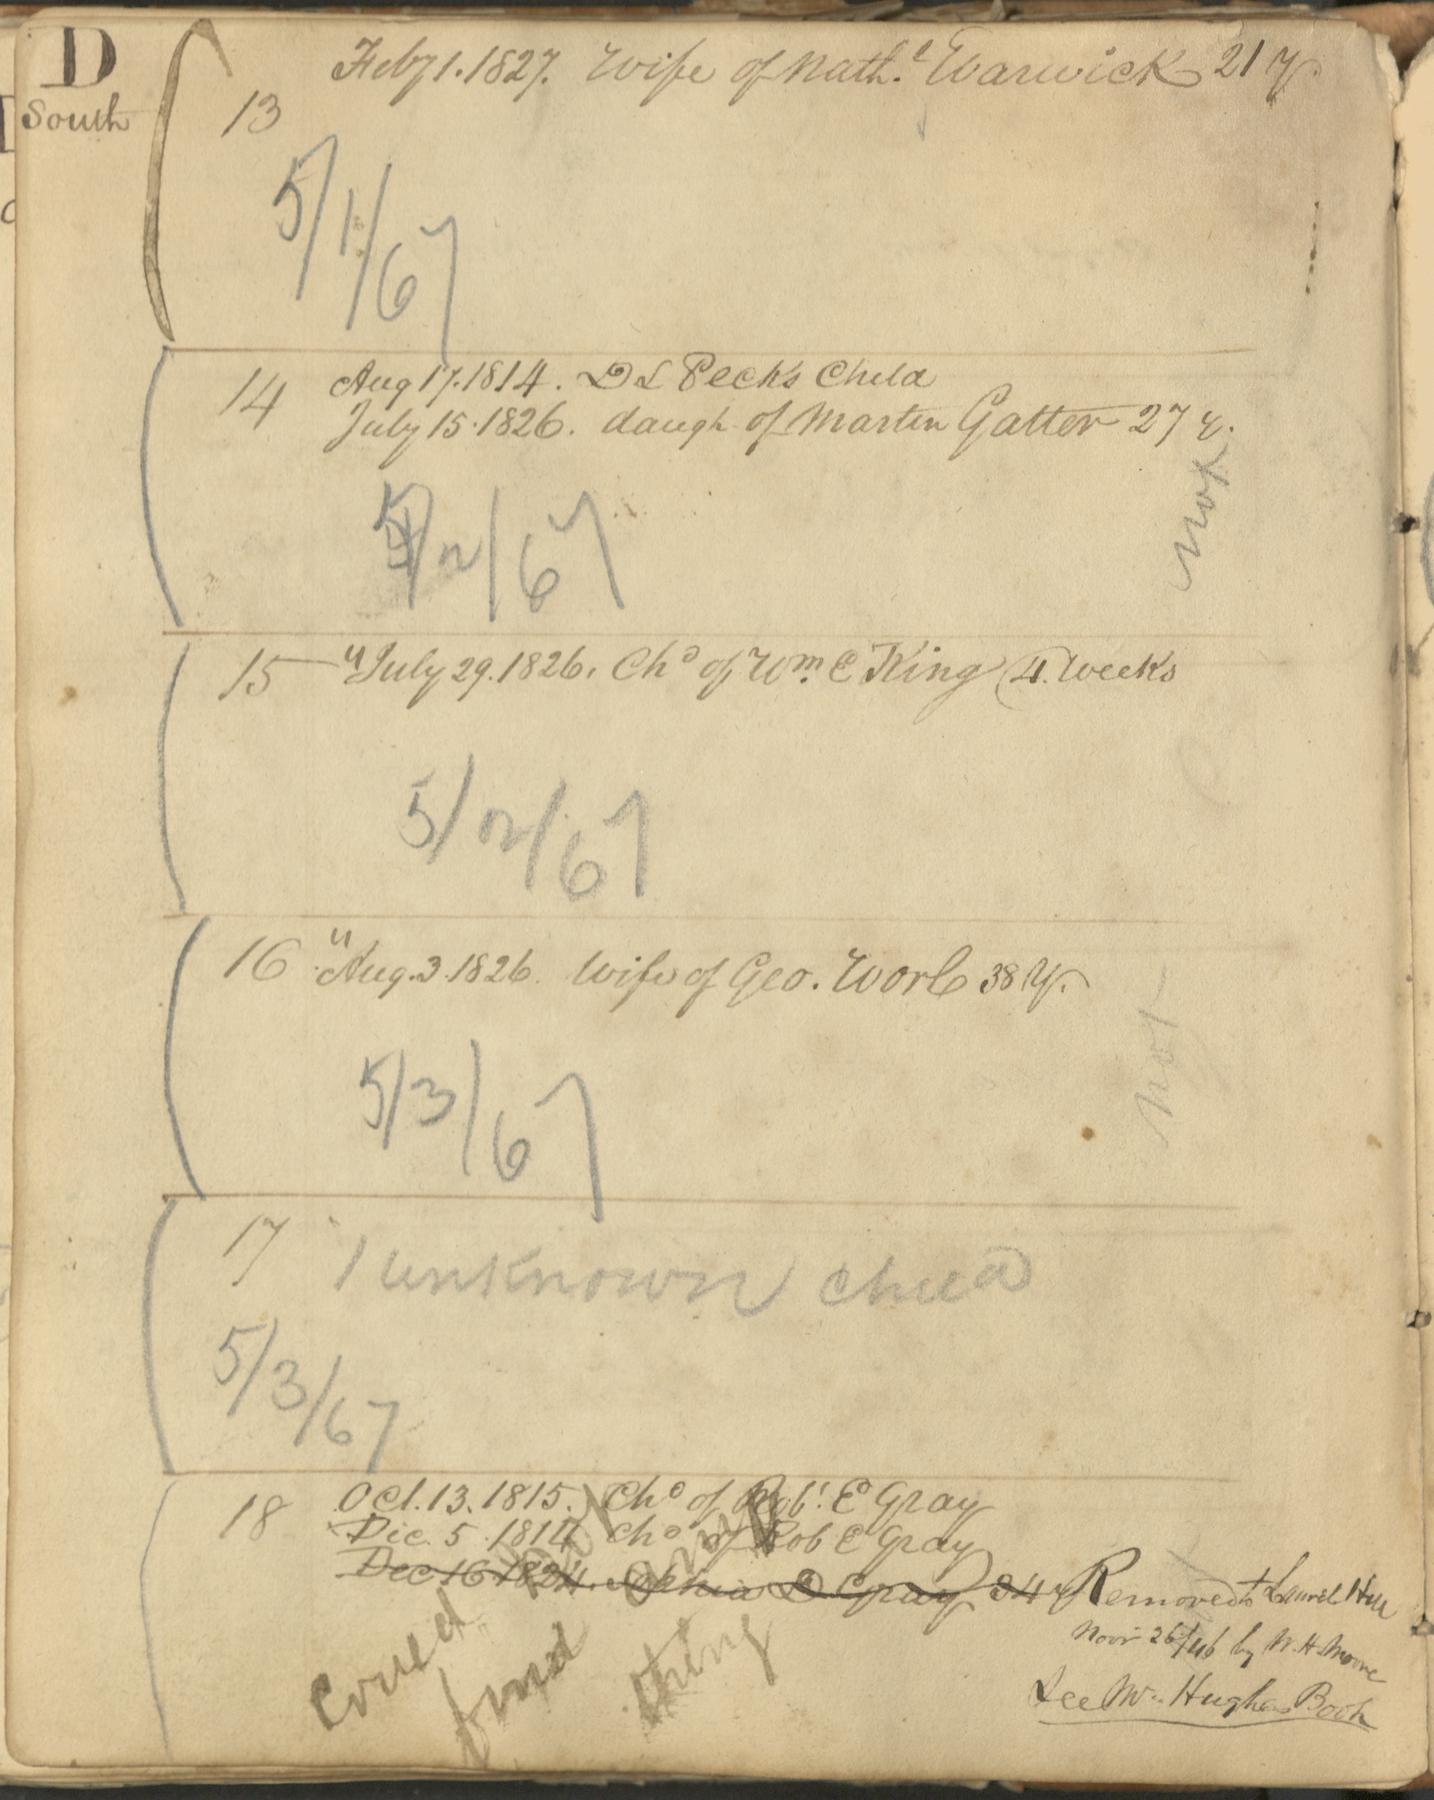 D
South
13 Feby 1. 1827. Wife of Nath.l Warwick 21 y
5/1/67
14 Aug 17. 1814. D L Peck's Child
July 15. 1826. daugh of Martin Gatter 27 y.
not
5/2/67
15 " July 29. 1826. Chd of Wm. C King (4. Weeks
5/2/67
16 " Aug. 3. 1826. Wife of Geo. Worl 38 y.
not
5/3/67
17 1 unknown child
5/3/67
18 Oct. 13. 1815. Chd of Robt. E Gray
Dec. 5. 1814 Chd of Rob E Gray
Dec 16 1824. Gray 34 y Removed to Laurel Hill
Novr 26/46 by W. H. Moore
See Mr. Hughes Book
Could not
find any
thing